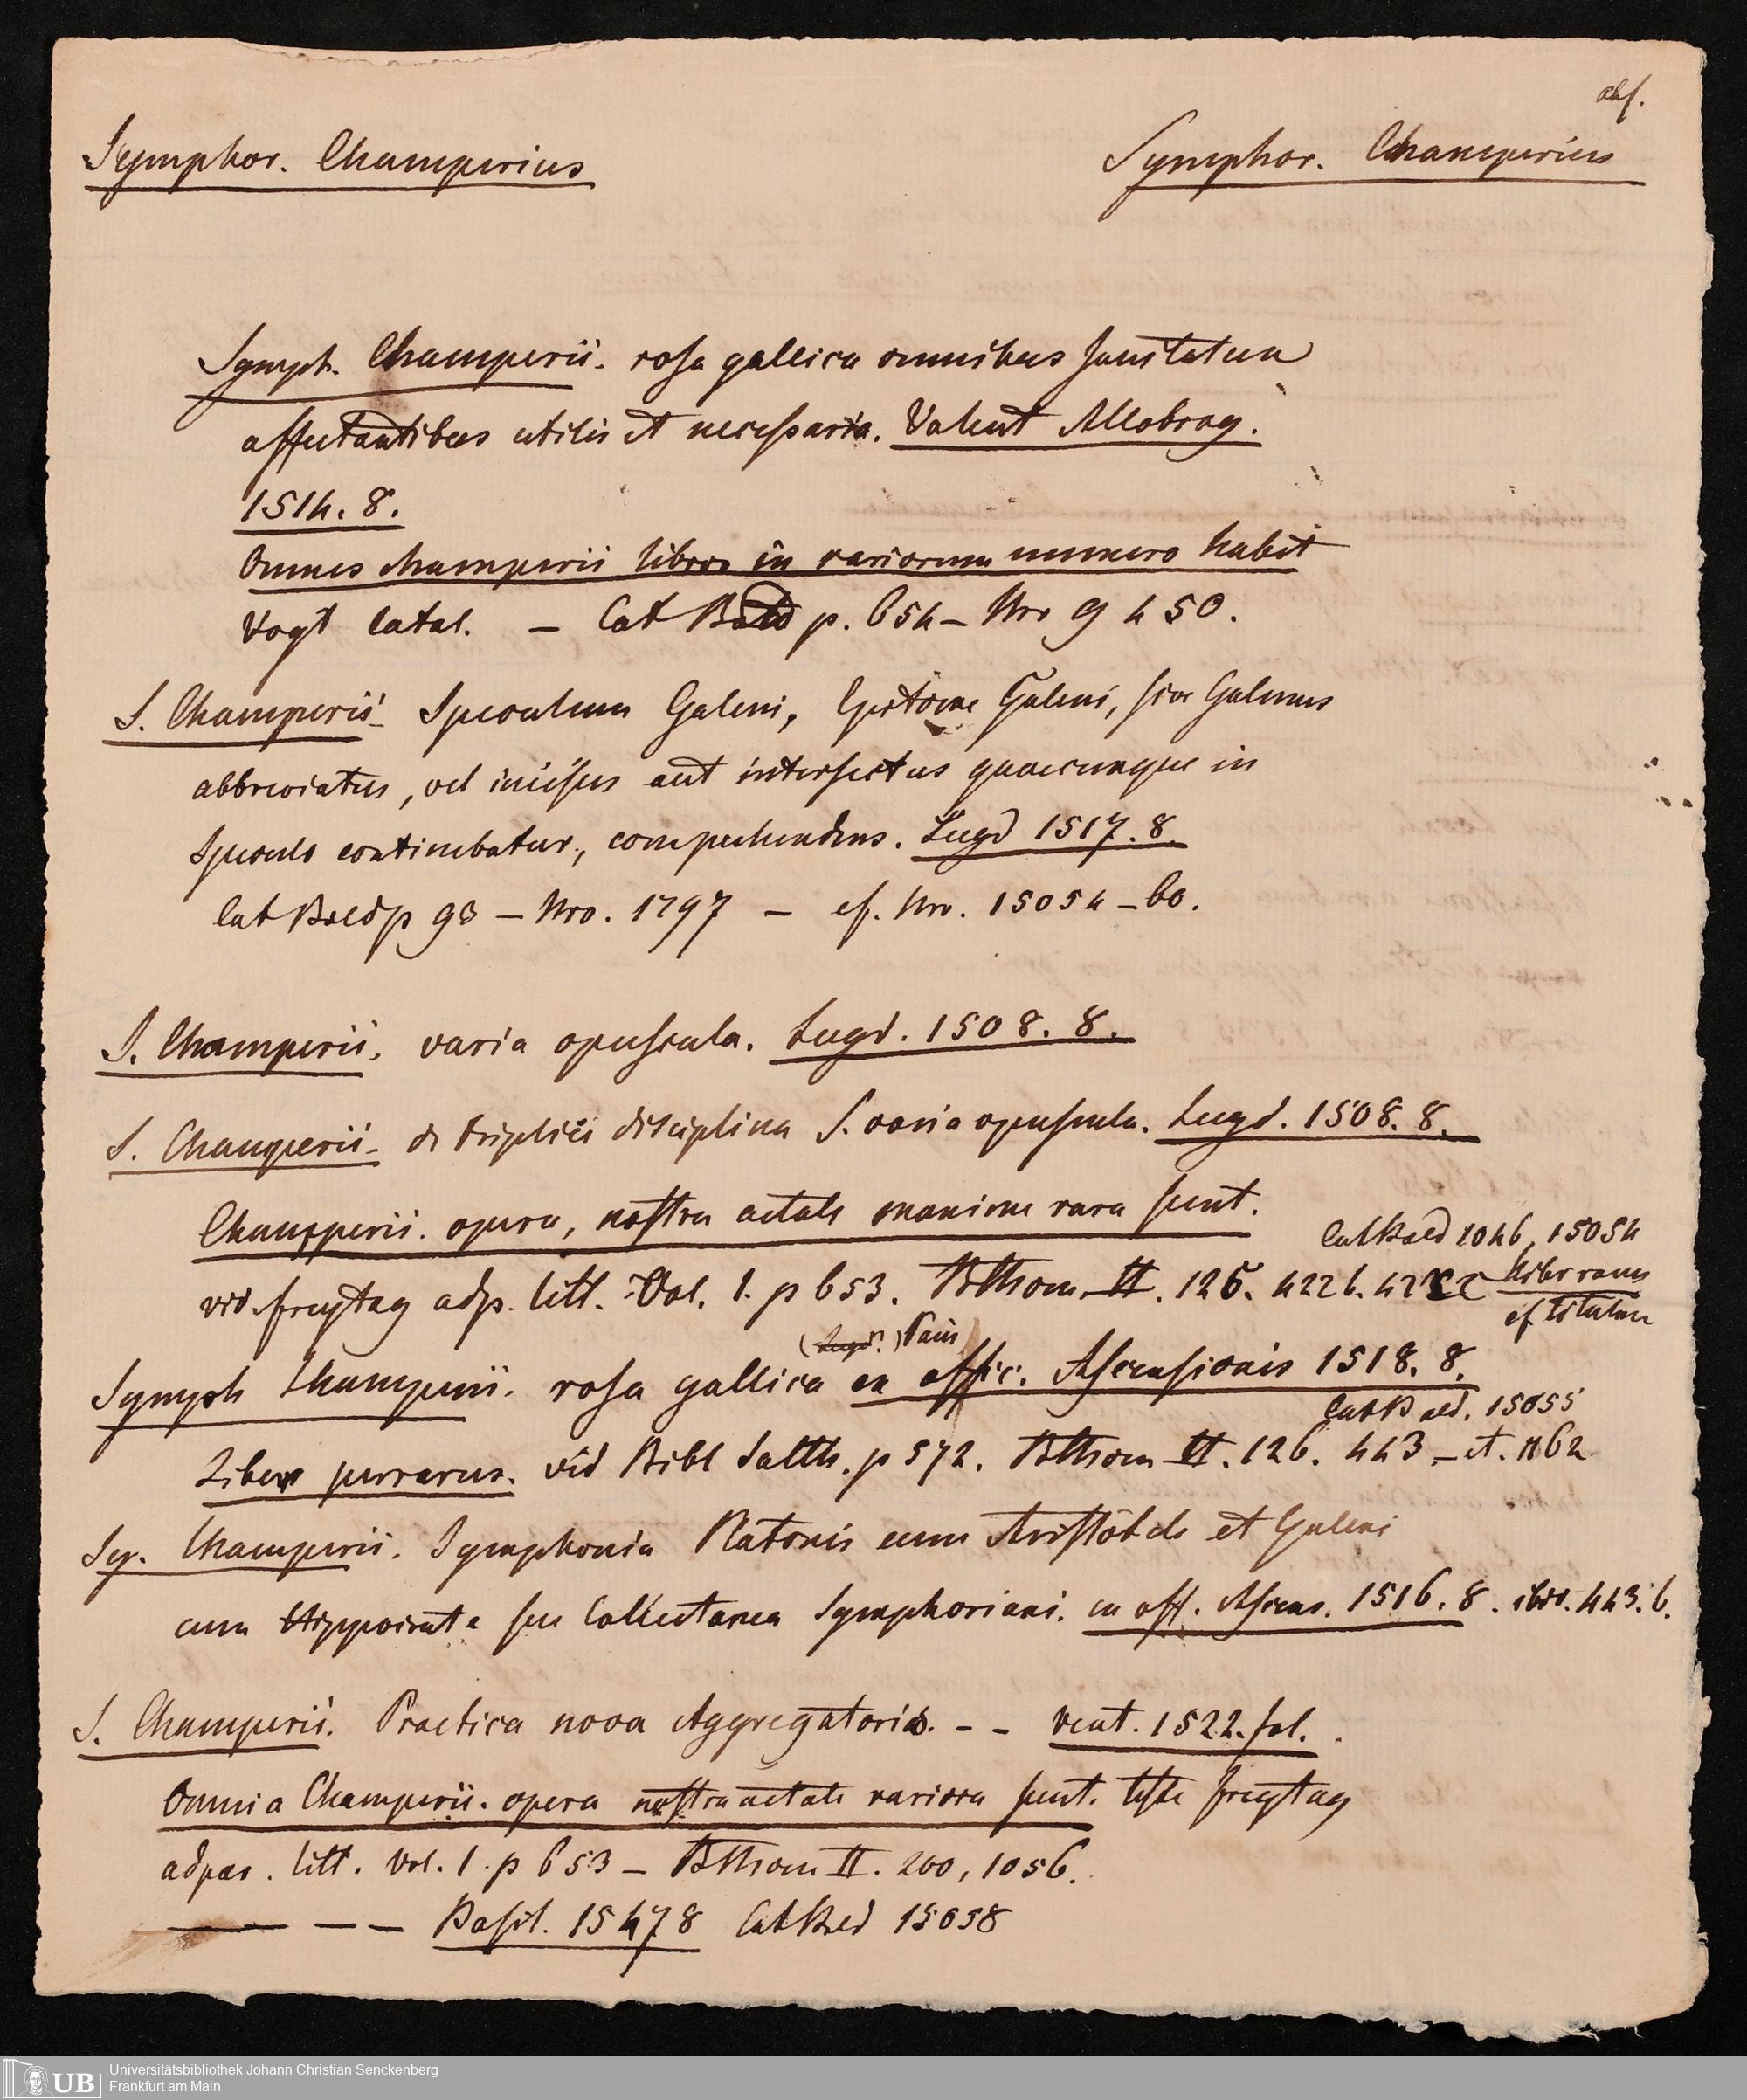 abs.
Symphor. Champerius
Symphor. Champerius
Symph. Champerii. rosa gallica omnibus sanitatem
affectantibus utilis et necessaria. Valent Allobrog.
1514. 8.
Omnes Champerii libros in rariorum numero habet
Vogt Catal. — Cat Bald p. 654 — Nro 9450.
S. Champerii Speculum Galeni, Epitome Galeni, sive Galenus
abbreviatus, vel incisus aut intersectus quaecunque in
Speculo continebatur, comprehendens. Lugd 1517. 8.
Cat Bald p 98 — Nro. 1797 — cf. Nro. 15054 — 60.
S. Champerii. varia opuscula. Lugd. 1508. 8.
S. Champerii. de triplici disciplina S. varia opuscula. Lugd. 1508. 8.
Champperii. opera, nostra aetate maxime rara sunt.
Cat Bald 1046, 15054
vid. freytag adp. litt. Vol. 1. p 653. BThom. II. 126. 4226.
liber rarus
cf titulum
(Lugd.) Paris
Symph Champerii. rosa gallica ex offic. Ascensionis 1518. 8.
Cat Bald. 15055
Liber perrarus. vid Bibl Salth. p 572. BThom II. 126. 443 — et. 1162
Sy. Champerii. Symphonia Platonis cum Aristotele et Galeni
cum Hippocrate seu Collectanea Symphoriani. ex off. Ascens. 1516. 8. ibid. 443. 6.
S. Champerii. Practica nova Aggregatoris. — — Vent. 1522. fol.
Omnia Champerii. opera nostra aetate rariora sunt. teste freytag
adpar. litt. Vol. 1. p 653 — BThom II. 200, 1056.
— — — Basil. 1547 8 Cat Bald 15058
UB Universitätsbibliothek Johann Christian Senckenberg
Frankfurt am Main